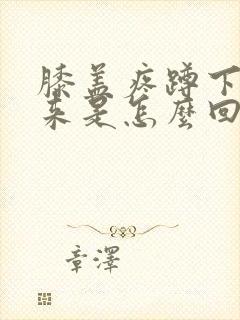 膝盖疼蹲下
来是怎麼回
章澤